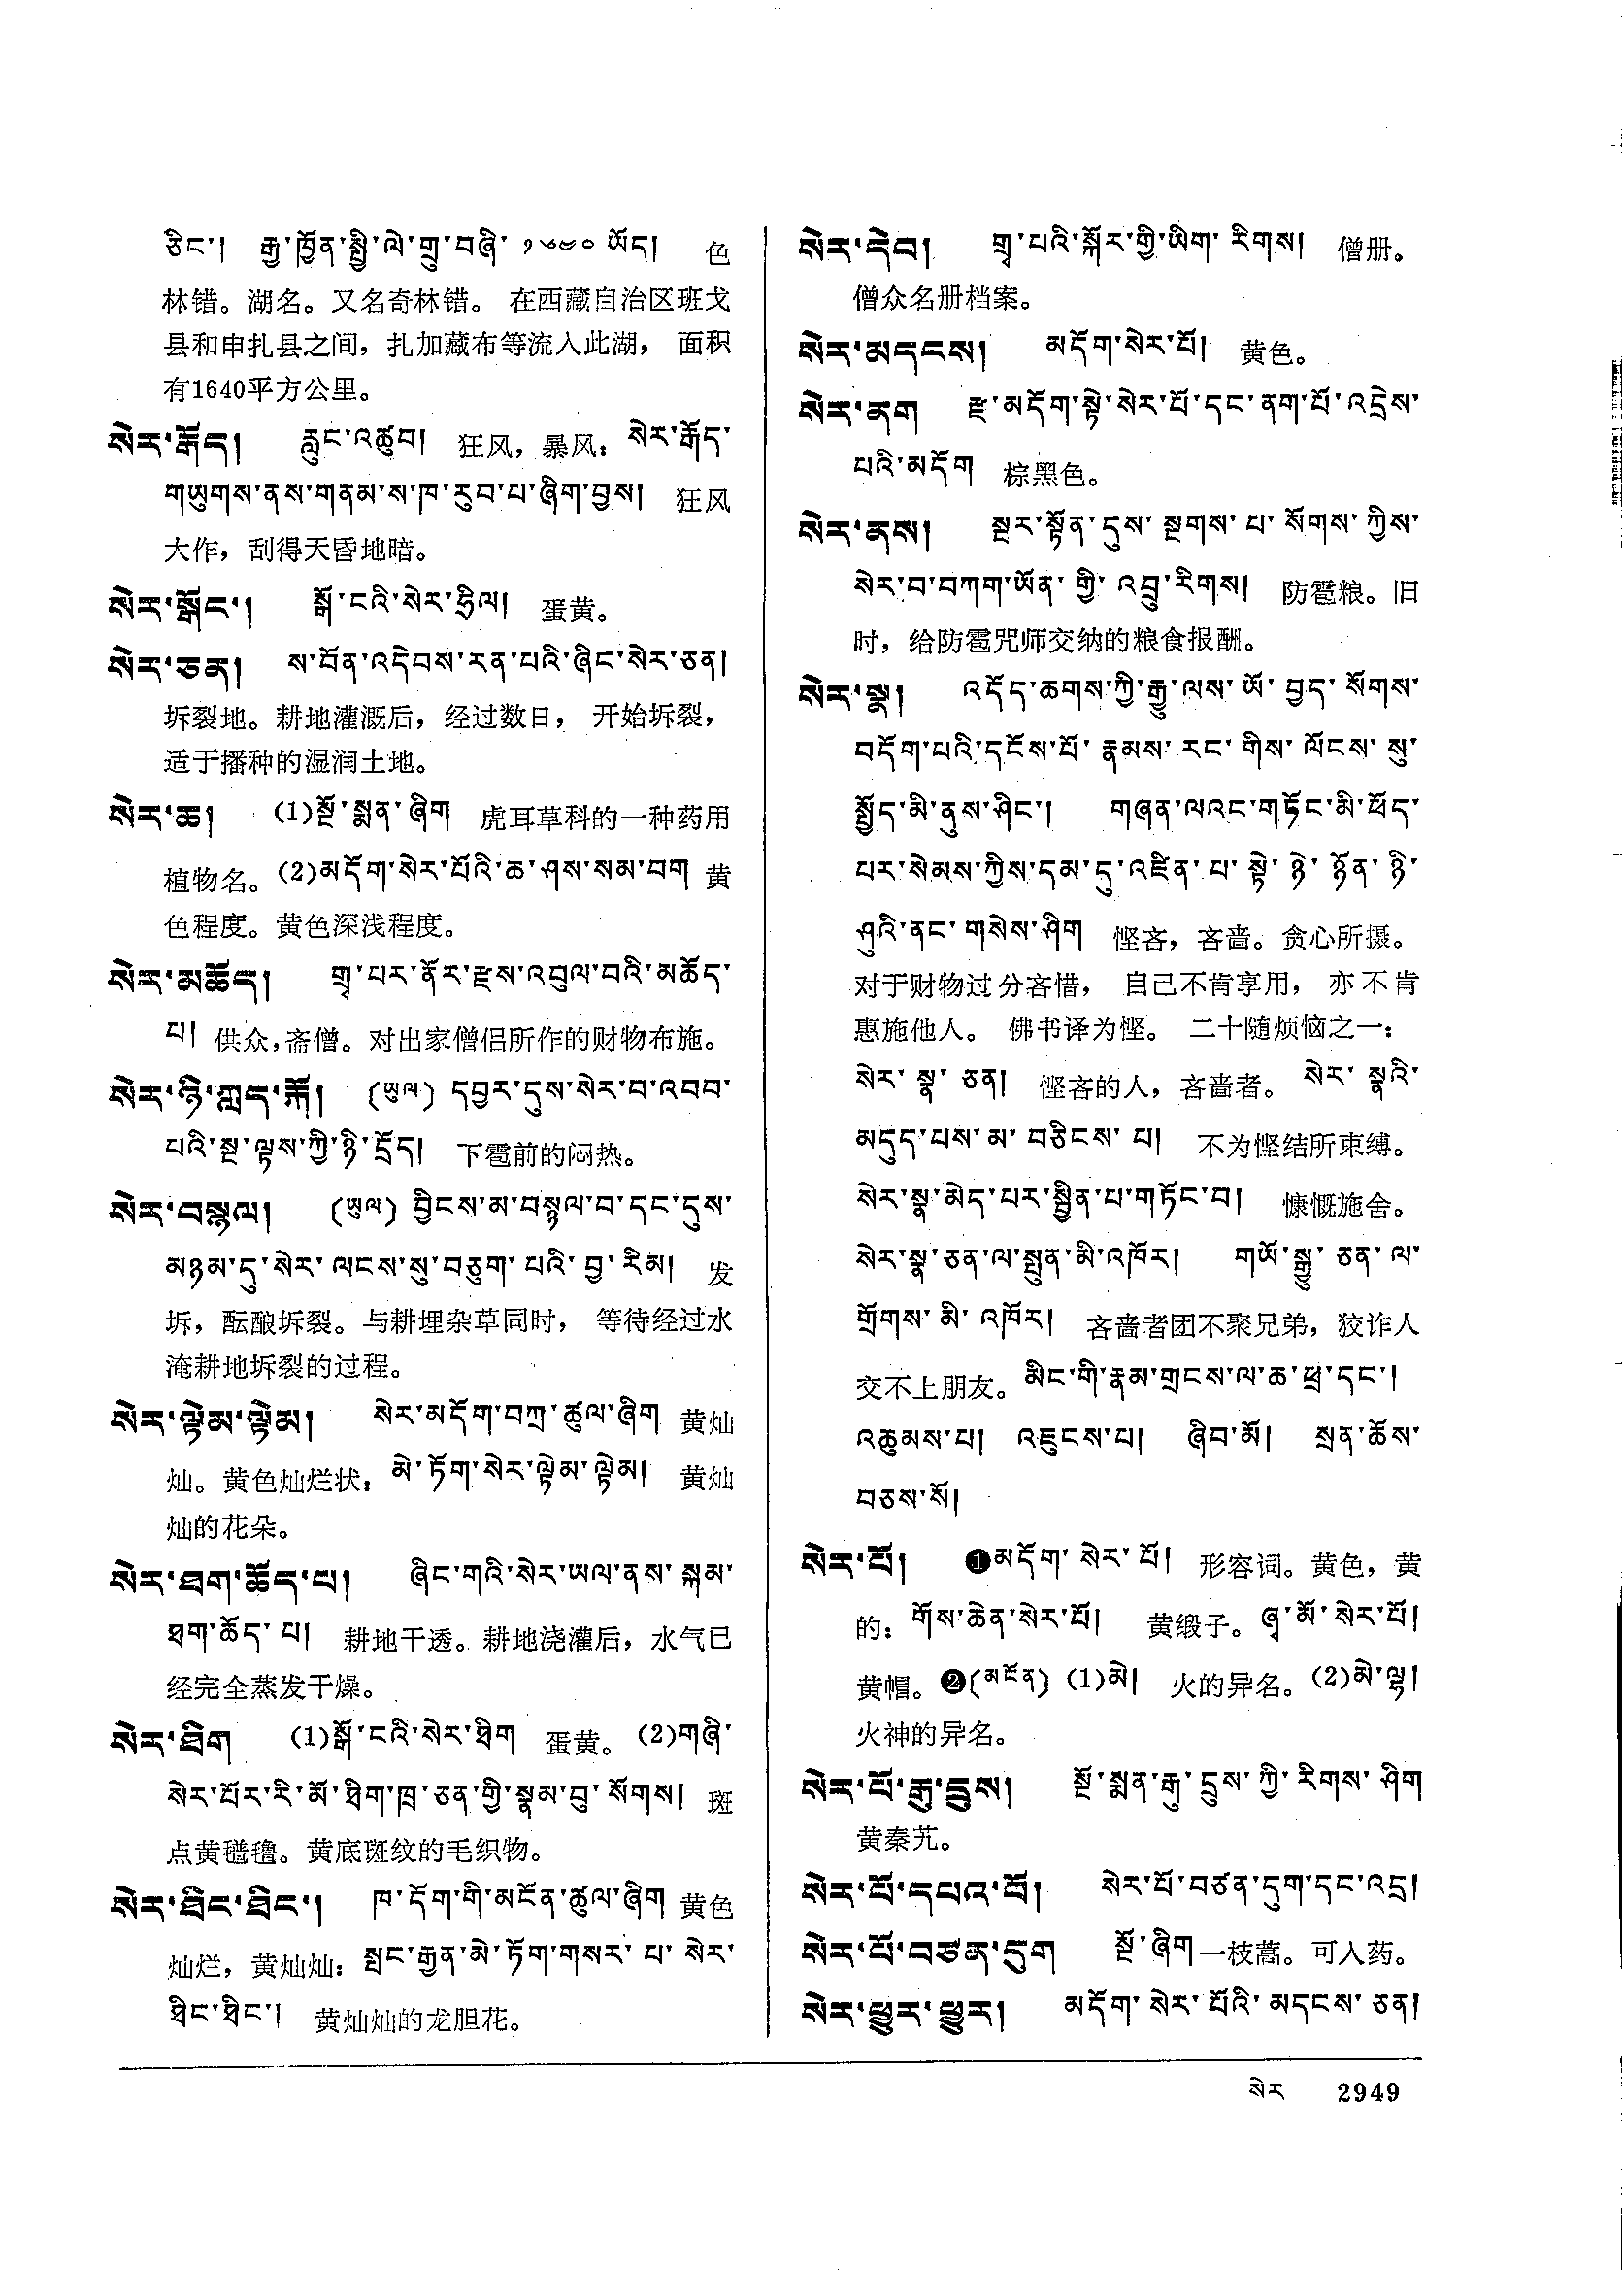 ཅིང་། རྒྱ་ཁྱོན་སྤྱི་ལེ་གྲུ་བཞི་༡༦༤༠ཡོད། 色
林错。湖名。又名奇林错。 在西藏自治区班戈
县和申扎县之间，扎加藏布等流入此湖， 面积
有1640平方公里。
སེར་རྒོད། རླུང་འཚུབ། 狂风，暴风：སེར་རྒོད་
གཡུགས་ནས་གནམ་ས་ཁ་རུབ་པ་ཞིག་བྱས། 狂风
大作，刮得天昏地暗。
སེར་སྒོང་། སྒོ་ངའི་སེར་ཧྲིལ། 蛋黄。
སེར་ཅན། ས་བོན་འདེབས་རན་པའི་ཞིང་སེར་ཅན།
坼裂地。耕地灌溉后，经过数日， 开始坼裂，
适于播种的湿润土地。
སེར་ཆ། (1)སྔོ་སྨན་ཞིག 虎耳草科的一种药用
植物名。(2)མདོག་སེར་པོའི་ཆ་ཤས་སམ་བག 黄
色程度。黄色深浅程度。
སེར་མཆོད། གྲྭ་པར་ནོར་རྫས་འབུལ་བའི་མཆོད་
པ། 供众,斋僧。对出家僧侣所作的财物布施。
སེར་ཉི་ཀླད་རྐོ། (ཡུལ) དབྱར་དུས་སེར་བ་འབབ་
པའི་སྔ་ལྟས་ཀྱི་ཉི་དྲོད། 下雹前的闷热。
སེར་བསྙལ། (ཡུལ) བྱིངས་མ་བསྙལ་བ་དང་དུས་
མཉམ་དུ་སེར་ལངས་སུ་བཅུག་པའི་བྱ་རིམ། 发
坼，酝酿坼裂。与耕埋杂草同时， 等待经过水
淹耕地坼裂的过程。
སེར་ལྟེམ་ལྟེམ། སེར་མདོག་བཀྲ་ཚུལ་ཞིག 黄灿
灿。黄色灿烂状：མེ་ཏོག་སེར་ལྟེམ་ལྟེམ། 黄灿
灿的花朵。
སེར་ཐག་ཆོད་པ། ཞིང་གའི་སེར་ཡལ་ནས་སྐམ་
ཐག་ཆོད་པ། 耕地干透。耕地浇灌后，水气已
经完全蒸发干燥。
སེར་ཐིག (1)སྒོ་ངའི་སེར་ཐིག 蛋黄。(2)གཞི་
སེར་པོར་རི་མོ་ཐིག་ཁྲ་ཅན་གྱི་སྣམ་བུ་སོགས། 斑
点黄氆氇。黄底斑纹的毛织物。
སེར་ཐིང་ཐིང་། ཁ་དོག་གི་མངོན་ཚུལ་ཞིག 黄色
灿烂，黄灿灿：སྤང་རྒྱན་མེ་ཏོག་གསར་པ་སེར་
ཐིང་ཐིང་། 黄灿灿的龙胆花。
སེར་དེབ། གྲྭ་པའི་སྐོར་གྱི་ཡིག་རིགས། 僧册。
僧众名册档案。
སེར་མདངས། མདོག་སེར་པོ། 黄色。
སེར་ནག རྫ་མདོག་སྟེ་སེར་པོ་དང་ནག་པོ་འདྲེས་
པའི་མདོག 棕黑色。
སེར་ནས། སྔར་སྟོན་དུས་སྔགས་པ་སོགས་ཀྱིས་
སེར་བ་བཀག་ཡོན་གྱི་འབྲུ་རིགས། 防雹粮。旧
时，给防雹咒师交纳的粮食报酬。
སེར་སྣ། འདོད་ཆགས་ཀྱི་རྒྱུ་ལས་ཡོ་བྱད་སོགས་
བདོག་པའི་དངོས་པོ་རྣམས་རང་གིས་ལོངས་སུ་
སྤྱོད་མི་ནུས་ཤིང་། གཞན་ལའང་གཏོང་མི་ཕོད་
པར་སེམས་ཀྱིས་དམ་དུ་འཛིན་པ་སྟེ་ཉེ་ཉོན་ཉི་
ཤུའི་ནང་གསེས་ཤིག 悭吝，吝啬。贪心所摄。
对于财物过分吝惜， 自己不肯享用， 亦不肯
惠施他人。 佛书译为悭。 二十随烦恼之一：
སེར་སྣ་ཅན། 悭吝的人，吝啬者。སེར་སྣའི་
མདུད་པས་མ་བཅིངས་པ། 不为悭结所束缚。
སེར་སྣ་མེད་པར་སྦྱིན་པ་གཏོང་བ། 慷慨施舍。
སེར་སྣ་ཅན་ལ་སྤུན་མི་འཁོར། གཡོ་སྒྱུ་ཅན་ལ་
གྲོགས་མི་འཁོར། 吝啬者团不聚兄弟，狡诈人
交不上朋友。མིང་གི་རྣམ་གྲངས་ལ་ཆ་ཕྲ་དང་།
འཆུམས་པ། འཇུངས་པ། ཞིབ་མོ། སྲན་ཆོས་
བཅས་སོ།
སེར་པོ། ❶མདོག་སེར་པོ། 形容词。黄色，黄
的：གོས་ཆེན་སེར་པོ། 黄缎子。ཞྭ་མོ་སེར་པོ།
黄帽。❷(མངོན) (1)མེ། 火的异名。(2)མེ་ལྷ།
火神的异名。
སེར་པོ་རྒུ་དྲུས། སྔོ་སྨན་རྒུ་དྲུས་ཀྱི་རིགས་ཤིག
黄秦艽。
སེར་པོ་དཔའ་བོ། སེར་པོ་བཙན་དུག་དང་འདྲ།
སེར་པོ་བཙན་དུག སྔོ་ཞིག一枝蒿。可入药。
སེར་ཕྱུར་ཕྱུར། མདོག་སེར་པོའི་མདངས་ཅན།
སེར 2949